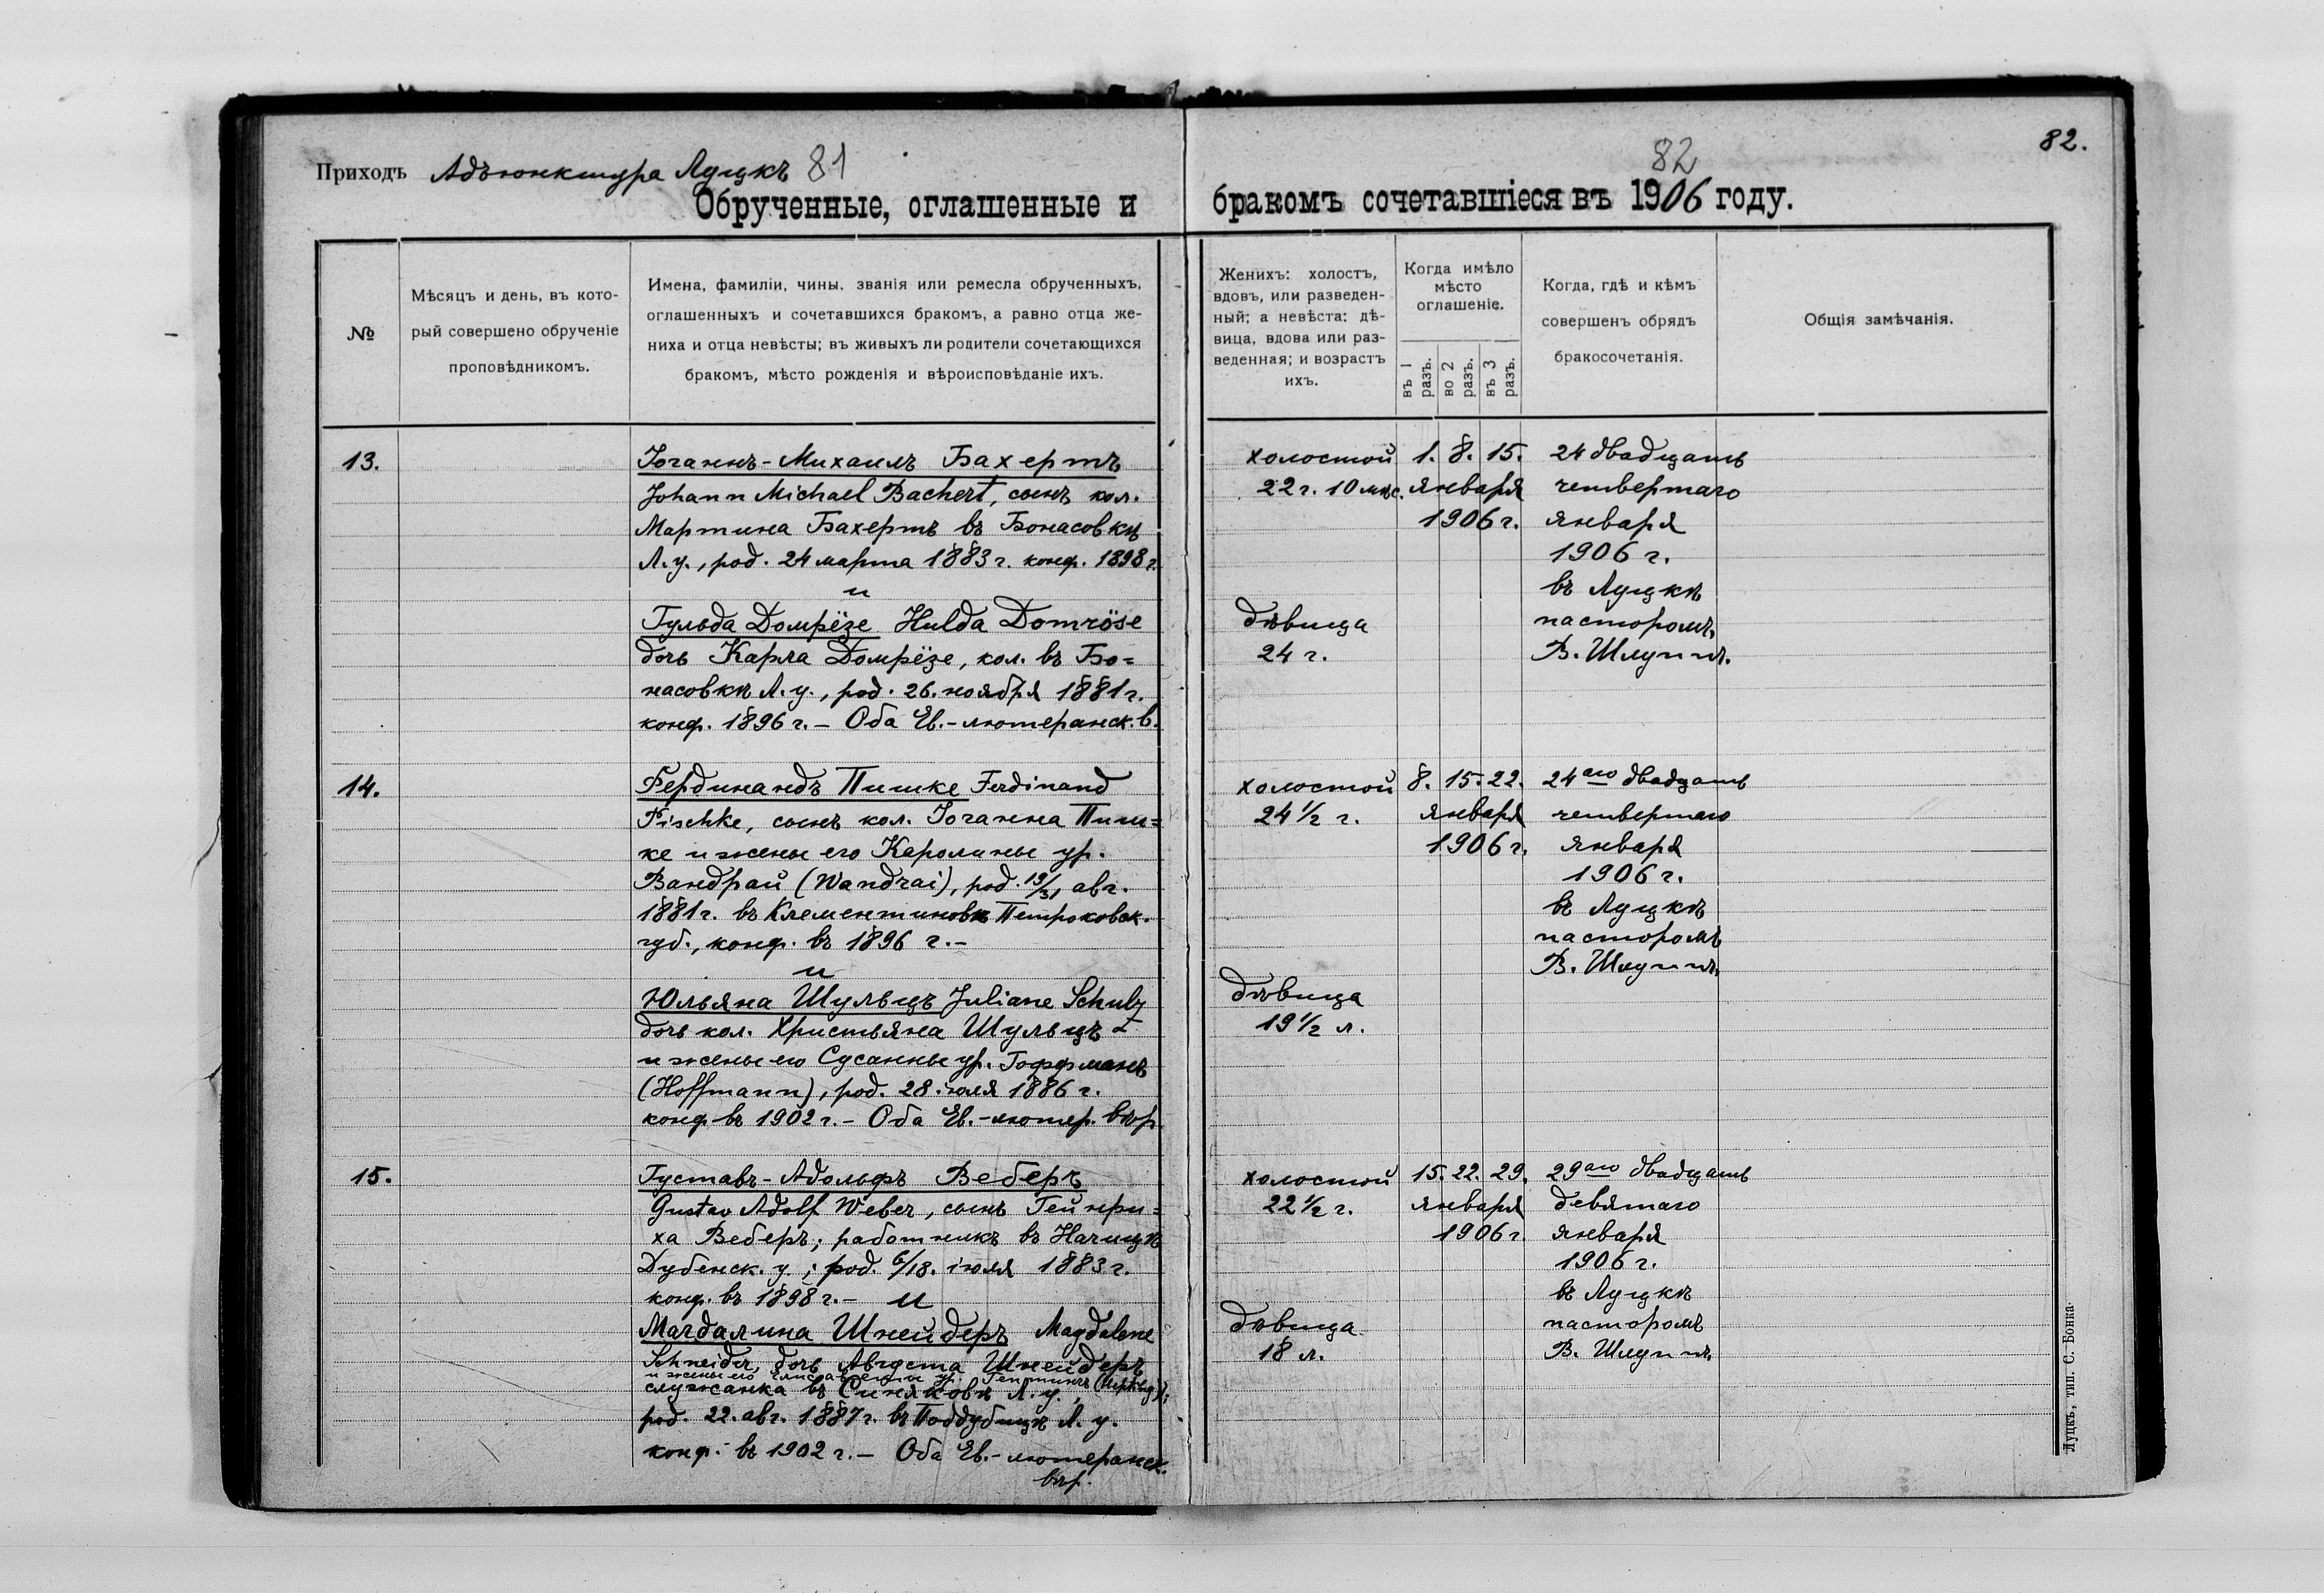 Приходъ Адъюнктура Луцкъ 81
82
82.
Обрученные, оглашенные и бракомъ сочетавшіеся въ 1906 году.
№
Мѣсяцъ и день, въ кото-
рый совершено обрученіе
проповѣдникомъ.
Имена, фамиліи, чины, званія или ремесла обрученныхъ,
оглашенныхъ и сочетавшихся бракомъ, а равно отца же-
ниха и отца невѣсты; въ живыхъ ли родители сочетающихся
бракомъ, мѣсто рожденія и вѣроисповѣданіе ихъ.
Женихъ: холостъ,
вдовъ, или разведен-
ный; а невѣста: дѣ-
вица, вдова или раз-
веденная; и возрастъ
ихъ.
Когда имѣло
мѣсто
оглашеніе.
въ 1 разъ.
во 2 разъ.
въ 3 разъ.
Когда, гдѣ и кѣмъ
совершенъ обрядъ
бракосочетанія.
Общія замѣчанія.
13.
Іоганнъ-Михаилъ Бахертъ
Johann Michael Bachert, сынъ кол.
Мартина Бахертъ въ Бонасовкѣ
Л. у., род. 24 марта 1883 г. конф. 1898 г.
и
Гульда Домрёзе Hulda Domröse
дочь Карла Домрёзе, кол. въ Бо=
насовкѣ Л. у., род. 26. ноября 1881 г.
конф. 1896 г. – Оба Ев.-лютеранск. в.
холостой
22 г. 10 мѣс.
дѣвица
24 г.
1. 8. 15.
января
1906 г.
24 двадцать
четвертаго
января
1906 г.
въ Луцкѣ
пасторомъ
В. Шлуппъ.
14.
Фердинандъ Пишке Ferdinand
Pischke, сынъ кол. Іоганна Пиш=
ке и жены его Каролины ур.
Вандрай (Wandrai), род. 19/31 авг.
1881 г. въ Клементиновѣ Петроковск.
губ., конф. въ 1896 г. –
и
Юльяна Шульцъ Juliane Schulz
дочь кол. Христьяна Шульцъ
и жены его Сусанны ур. Гоффманъ
(Hoffmann), род. 28. іюля 1886 г.
конф. въ 1902 г. – Оба Ев.-лютер. вѣр.
холостой
24 1/2 г.
дѣвица
19 1/2 л.
8. 15. 22.
января
1906 г.
24аго двадцать
четвертаго
января
1906 г.
въ Луцкѣ
пасторомъ
В. Шлуппъ.
15.
Густавъ-Адольфъ Веберъ
Gustav Adolf Weber, сынъ Гейнри=
ха Веберъ; работникъ въ
Дубенск. у.; род. 6/18. іюля 1883 г.
конф. въ 1898 г. – и
Магдалина Шнейдеръ Magdalene
Schneider, дочь Августа Шнейдеръ
и жены его Елисаветы ур.
служанка въ Синяковѣ Л. у.,
род. 22. авг. 1887 г. въ Поддубцѣ Л. у.
конф. въ 1902 г. – Оба Ев.-лютеранск.
вѣр.
холостой
22 1/2 г.
дѣвица
18 л.
15. 22. 29.
января
1906 г.
29аго двадцать
девятаго
января
1906 г.
въ Луцкѣ
пасторомъ
В. Шлуппъ
Луцкъ, тип. С. Бонка.